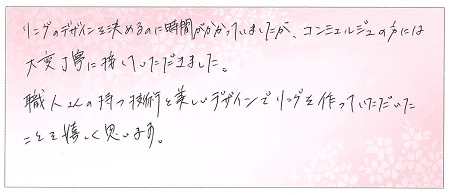 リングのデザインを決めるのに時間がかかっていましたが、コンシェルジュの方には
大変丁寧に接していただきました。
職人さんの持つ技術と美しいデザインでリングを作っていただいた
ことを嬉しく思います。